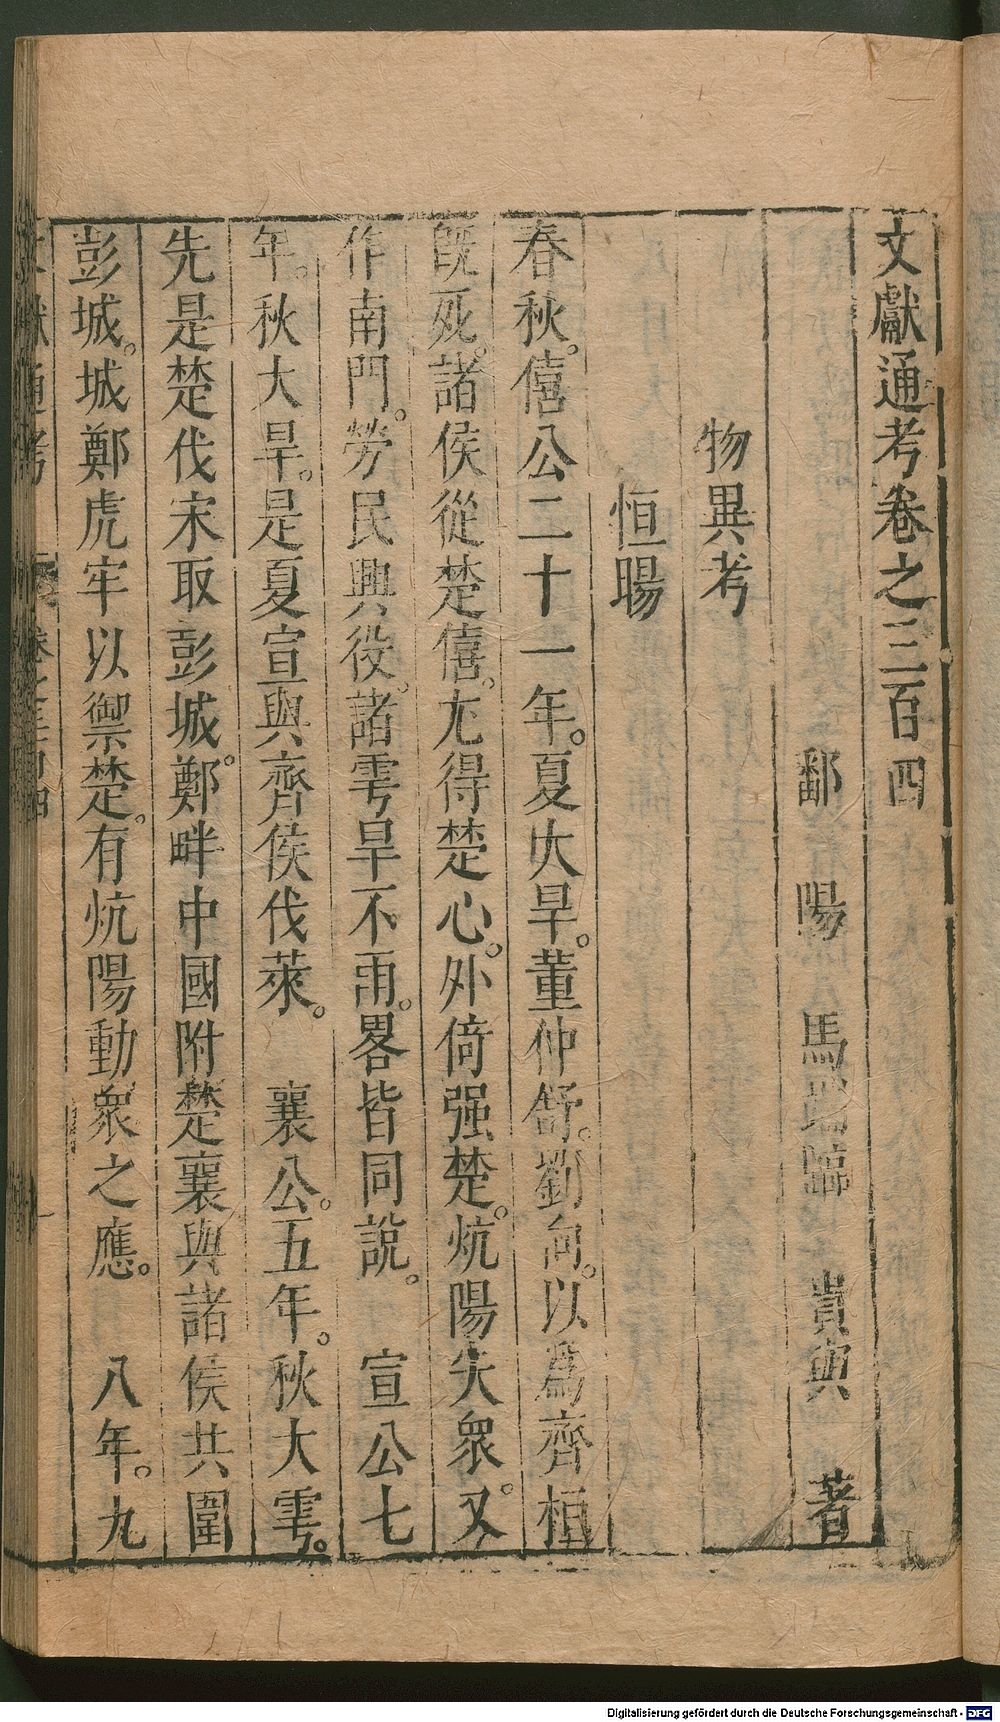 文獻通考卷之三百四
鄱陽 馬端臨 貴與 著
物異考
恒暘
春秋。僖公二十一年。夏大旱。董仲舒。劉向。以爲齊桓
旣死。諸侯從楚。僖。尤得楚心。外倚强楚。炕陽失衆。又
作南門。勞民興役。諸雩旱不雨。畧皆同說。 宣公七
年。秋大旱。是夏宣與齊侯伐萊。 襄公。五年。秋大雩。
先是楚伐宋取彭城。鄭畔中國附楚襄與諸侯共圍
彭城。城鄭虎牢以禦楚。有炕陽動衆之應。 八年。九
文獻通考 卷之三百四 一
Digitalisierung gefördert durch die Deutsche Forschungsgemeinschaft - DFG